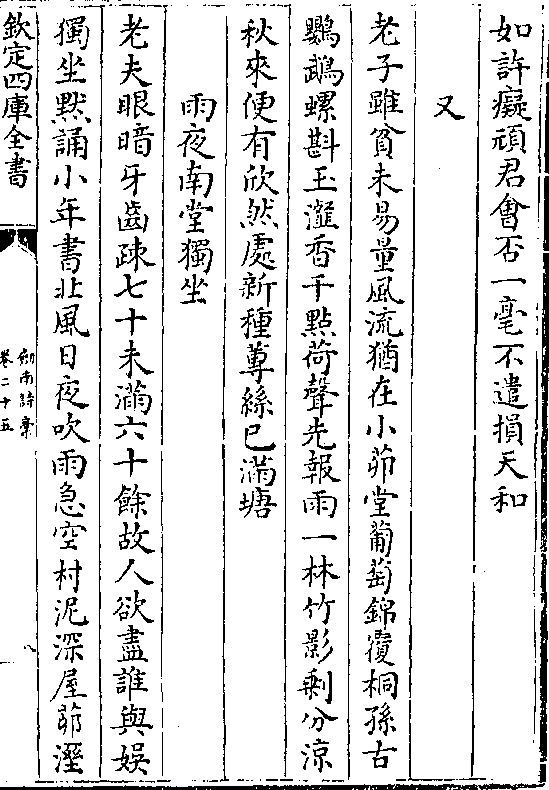 如許癡頑君會否一毫不遣損天和
又
老子雖貧未易量風流猶在小茆堂葡萄錦覆桐孫古
鸚鵡螺斟玉瀣香千點荷聲先報雨一林竹影剩分涼
秋來便有欣然處新種蓴絲已滿塘
雨夜南堂獨坐
老夫眼暗牙齒疎七十未滿六十餘故人欲盡誰與娛
獨坐黙誦小年書北風日夜吹雨急空村泥深屋茆溼
欽定四庫全書
劒南詩槀
卷二十五